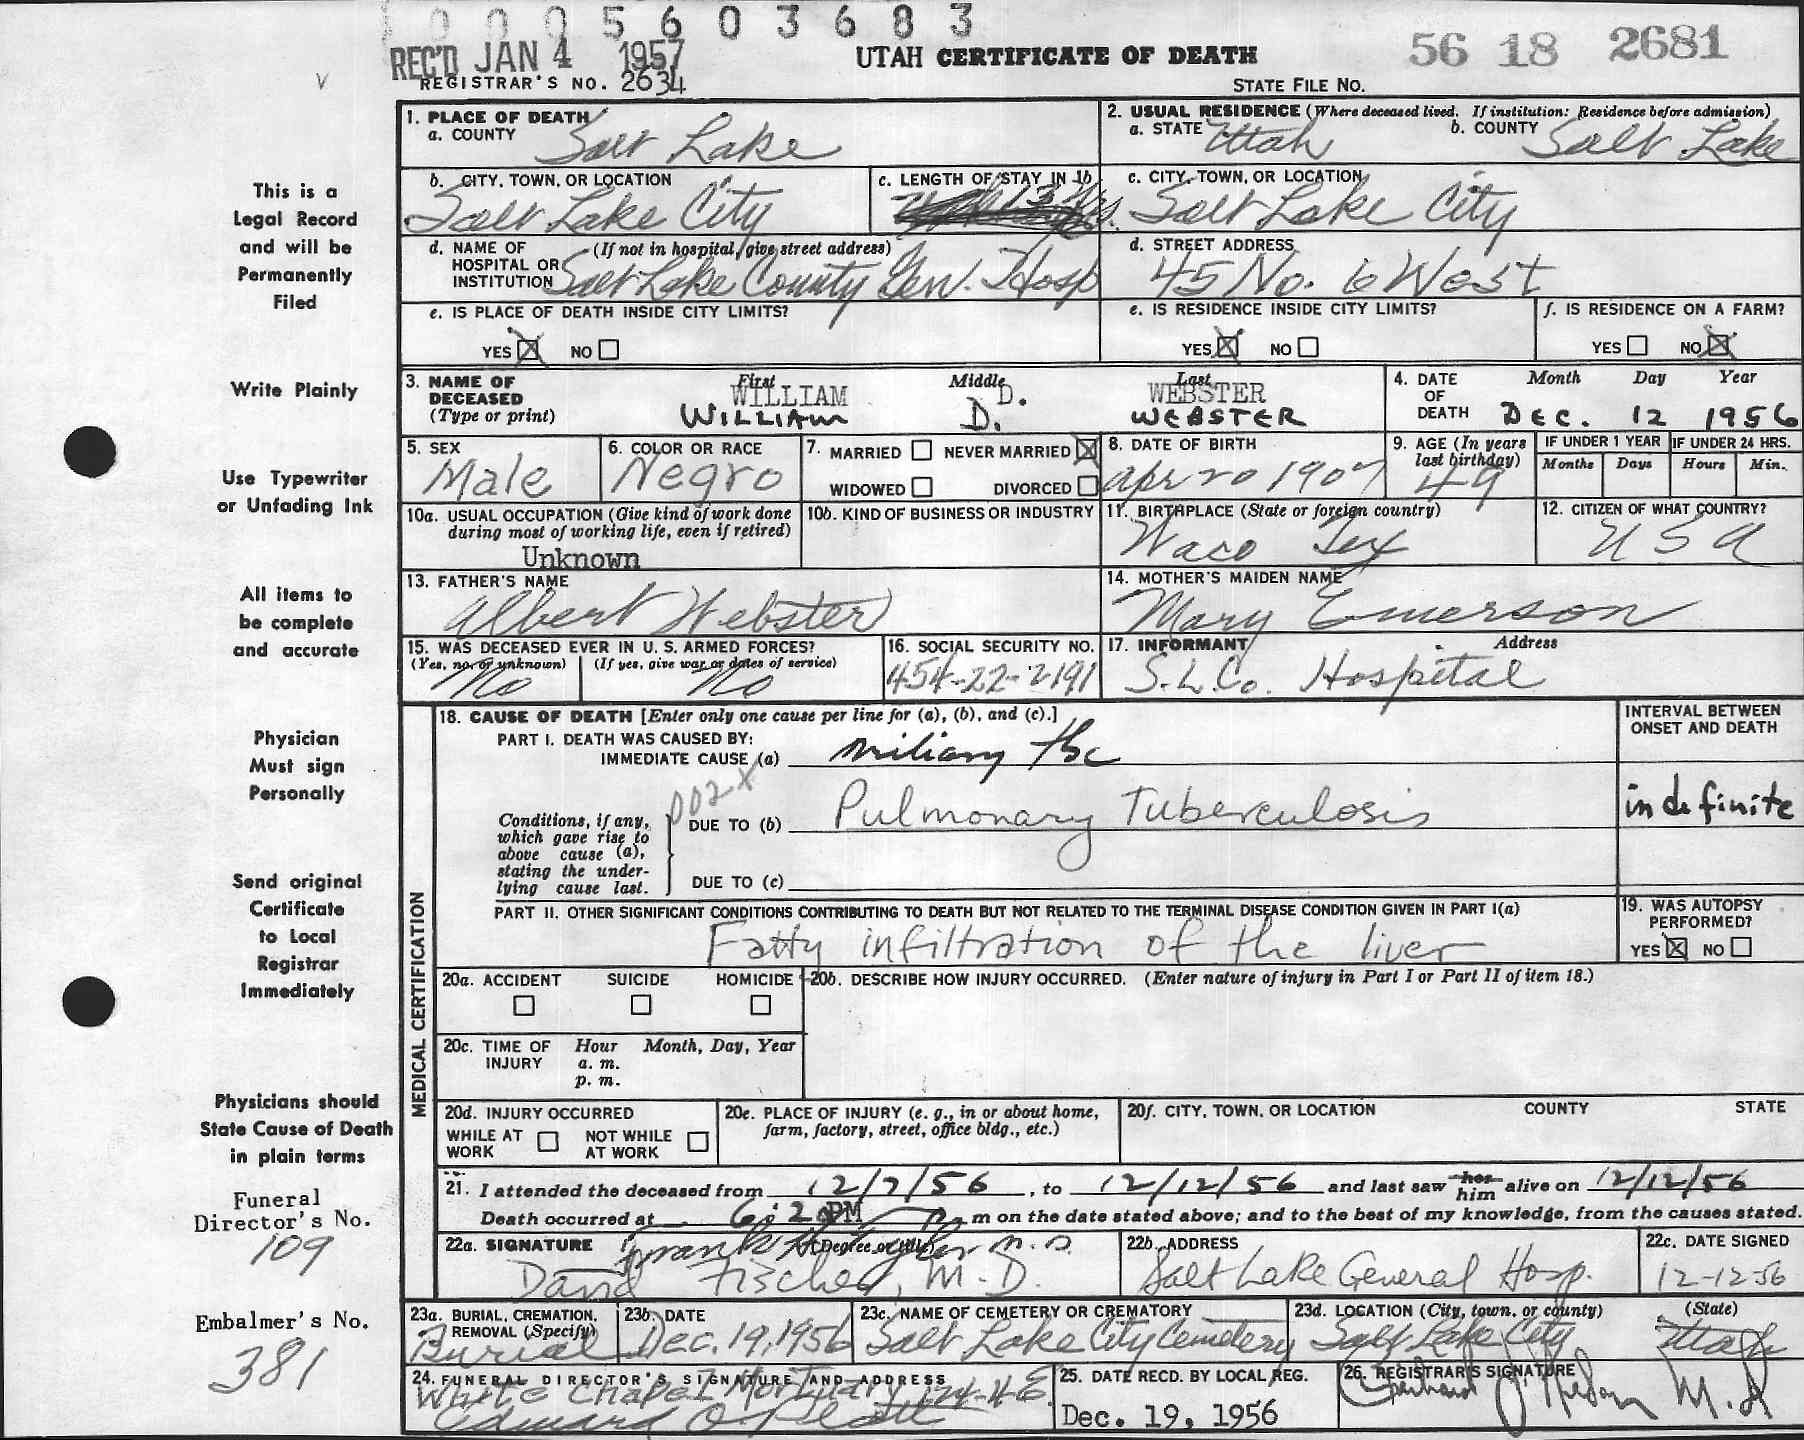 0005603683
REC'D JAN 4 1957
UTAH CERTIFICATE OF DEATH
56 18 2681
REGISTRAR'S NO. 2634
STATE FILE NO.
This is a
Legal Record
and will be
Permanently
Filed
Write Plainly
Use Typewriter
or Unfading Ink
All items to
be complete
and accurate
Physician
Must sign
Personally
Send original
Certificate
to Local
Registrar
Immediately
Physicians should
State Cause of Death
in plain terms
Funeral
Director's No.
109
Embalmer's No.
381
1. PLACE OF DEATH
a. COUNTY Salt Lake
2. USUAL RESIDENCE (Where deceased lived. If institution: Residence before admission)
a. STATE Utah b. COUNTY Salt Lake
b. CITY, TOWN, OR LOCATION
Salt Lake City
c. LENGTH OF STAY IN 1b
13 Yrs.
c. CITY, TOWN, OR LOCATION
Salt Lake City
d. NAME OF (If not in hospital, give street address)
HOSPITAL OR
INSTITUTION Salt Lake County Gen. Hosp
d. STREET ADDRESS
45 No. 6 West
e. IS PLACE OF DEATH INSIDE CITY LIMITS?
YES NO
e. IS RESIDENCE INSIDE CITY LIMITS?
YES NO
f. IS RESIDENCE ON A FARM?
YES NO
3. NAME OF DECEASED (Type or print)
First Middle Last
WILLIAM D. WEBSTER
WILLIAM D. WEBSTER
4. DATE OF DEATH
Month Day Year
DEC. 12 1956
5. SEX
Male
6. COLOR OR RACE
Negro
7. MARRIED NEVER MARRIED
WIDOWED DIVORCED
8. DATE OF BIRTH
Apr 20 1907
9. AGE (In years last birthday)
49
IF UNDER 1 YEAR
Months Days
IF UNDER 24 HRS.
Hours Min.
10a. USUAL OCCUPATION (Give kind of work done
during most of working life, even if retired)
Unknown
10b. KIND OF BUSINESS OR INDUSTRY
11. BIRTHPLACE (State or foreign country)
Waco Tex
12. CITIZEN OF WHAT COUNTRY?
USA
13. FATHER'S NAME
Albert Webster
14. MOTHER'S MAIDEN NAME
Mary Emerson
15. WAS DECEASED EVER IN U. S. ARMED FORCES?
(Yes, no, or unknown) (If yes, give war or dates of service)
No No
16. SOCIAL SECURITY NO.
454-22-2191
17. INFORMANT Address
S.L.Co. Hospital
MEDICAL CERTIFICATION
18. CAUSE OF DEATH [Enter only one cause per line for (a), (b), and (c).]
PART I. DEATH WAS CAUSED BY:
IMMEDIATE CAUSE (a) miliary tbc
INTERVAL BETWEEN
ONSET AND DEATH
002x
Conditions, if any,
which gave rise to
above cause (a),
stating the under-
lying cause last.
DUE TO (b) Pulmonary Tuberculosis
indefinite
DUE TO (c)
PART II. OTHER SIGNIFICANT CONDITIONS CONTRIBUTING TO DEATH BUT NOT RELATED TO THE TERMINAL DISEASE CONDITION GIVEN IN PART I(a)
Fatty infiltration of the liver
19. WAS AUTOPSY
PERFORMED?
YES NO
20a. ACCIDENT SUICIDE HOMICIDE
20b. DESCRIBE HOW INJURY OCCURRED. (Enter nature of injury in Part I or Part II of item 18.)
20c. TIME OF INJURY
Hour Month, Day, Year
a. m.
p. m.
20d. INJURY OCCURRED
WHILE AT WORK NOT WHILE AT WORK
20e. PLACE OF INJURY (e. g., in or about home,
farm, factory, street, office bldg., etc.)
20f. CITY, TOWN, OR LOCATION COUNTY STATE
21. I attended the deceased from 12/7/56, to 12/12/56 and last saw her him alive on 12/12/56
Death occurred at 6:20 PM P m on the date stated above; and to the best of my knowledge, from the causes stated.
22a. SIGNATURE (Degree or title)
Frank M.D.
David Fischer, M.D.
22b. ADDRESS
Salt Lake General Hosp.
22c. DATE SIGNED
12-12-56
23a. BURIAL, CREMATION,
REMOVAL (Specify)
Burial
23b. DATE
Dec. 19, 1956
23c. NAME OF CEMETERY OR CREMATORY
Salt Lake City Cemetery
23d. LOCATION (City, town, or county) (State)
Salt Lake City Utah
24. FUNERAL DIRECTOR'S SIGNATURE AND ADDRESS
White Chapel Mortuary 124-4 E
Edward O
25. DATE RECD. BY LOCAL REG.
Dec. 19, 1956
26. REGISTRAR'S SIGNATURE
M.D.